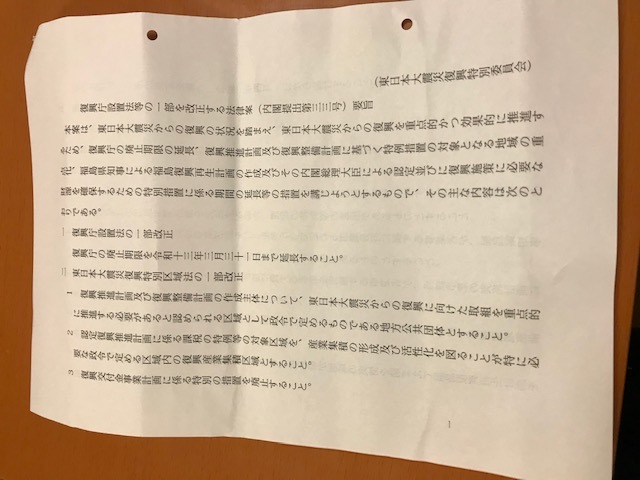 （東日本大震災復興特別委員会）
復興庁設置法等の一部を改正する法律案（内閣提出第三三号）要旨
本案は、東日本大震災からの復興の状況を踏まえ、東日本大震災からの復興を重点的かつ効果的に推進す
るため、復興庁の廃止期限の延長、復興推進計画及び復興整備計画に基づく特例措置の対象となる地域の重
点化、福島県知事による福島復興再生計画の作成及びその内閣総理大臣による認定並びに復興施策に必要な
財源を確保するための特別措置に係る期間の延長等の措置を講じようとするもので、その主な内容は次のと
おりである。
一　復興庁設置法の一部改正
復興庁の廃止期限を令和十三年三月三十一日まで延長すること。
二　東日本大震災復興特別区域法の一部改正
1　復興推進計画及び復興整備計画の作成主体について、東日本大震災からの復興に向けた取組を重点的
に推進する必要があると認められる区域として政令で定めるものである地方公共団体とすること。
2　認定復興推進計画に係る課税の特例等の対象区域を、産業集積の形成及び活性化を図ることが特に必
要な政令で定める区域内の復興産業集積区域とすること。
3　復興交付金事業計画に係る特別の措置を廃止すること。
一